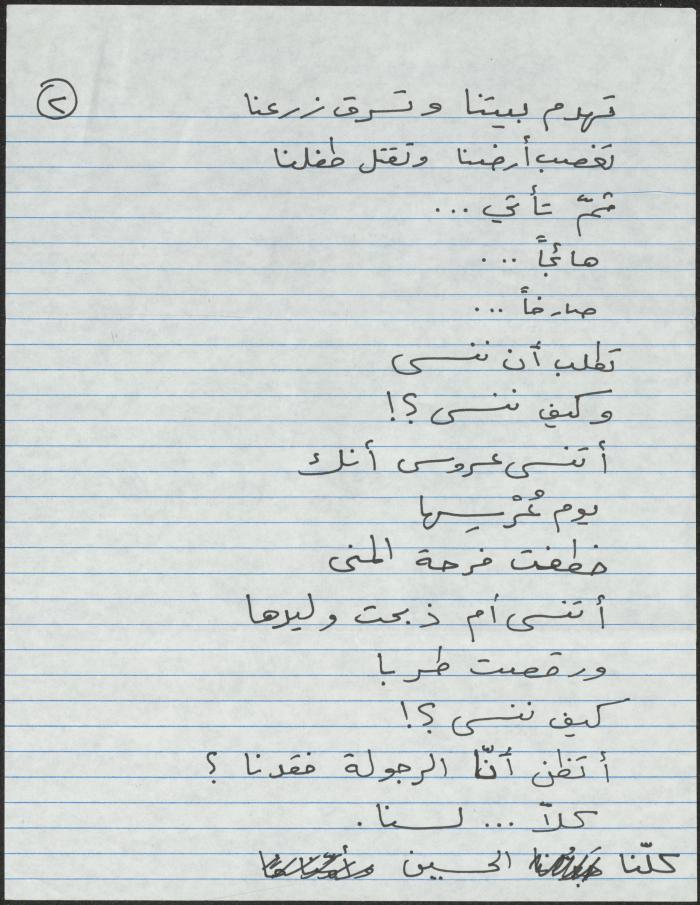 ٢
تهدم بيتنا وتسرق زرعنا
تغصب أرضنا وتقتل طفلنا
ثمّ تأتي ...
هائجاً ...
صارخاً ...
تطلب أن ننسى
وكيف ننسى ؟!
أتنسى عروس أنك
يوم عُرْسِها
خطفت فرحة المنى
أتنسى أم ذبحت وليدها
ورقصت طربا
كيف ننسى ؟!
أتظن أنّا الرجولة فقدنا ؟
كلاّ ... لسنا .
كلّنا الحسين